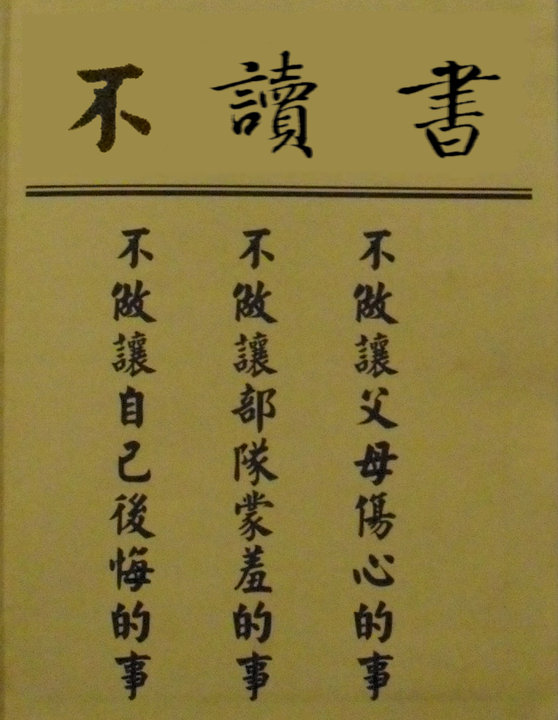 不讀書
不做讓父母傷心的事
不做讓部隊蒙羞的事
不做讓自己後悔的事